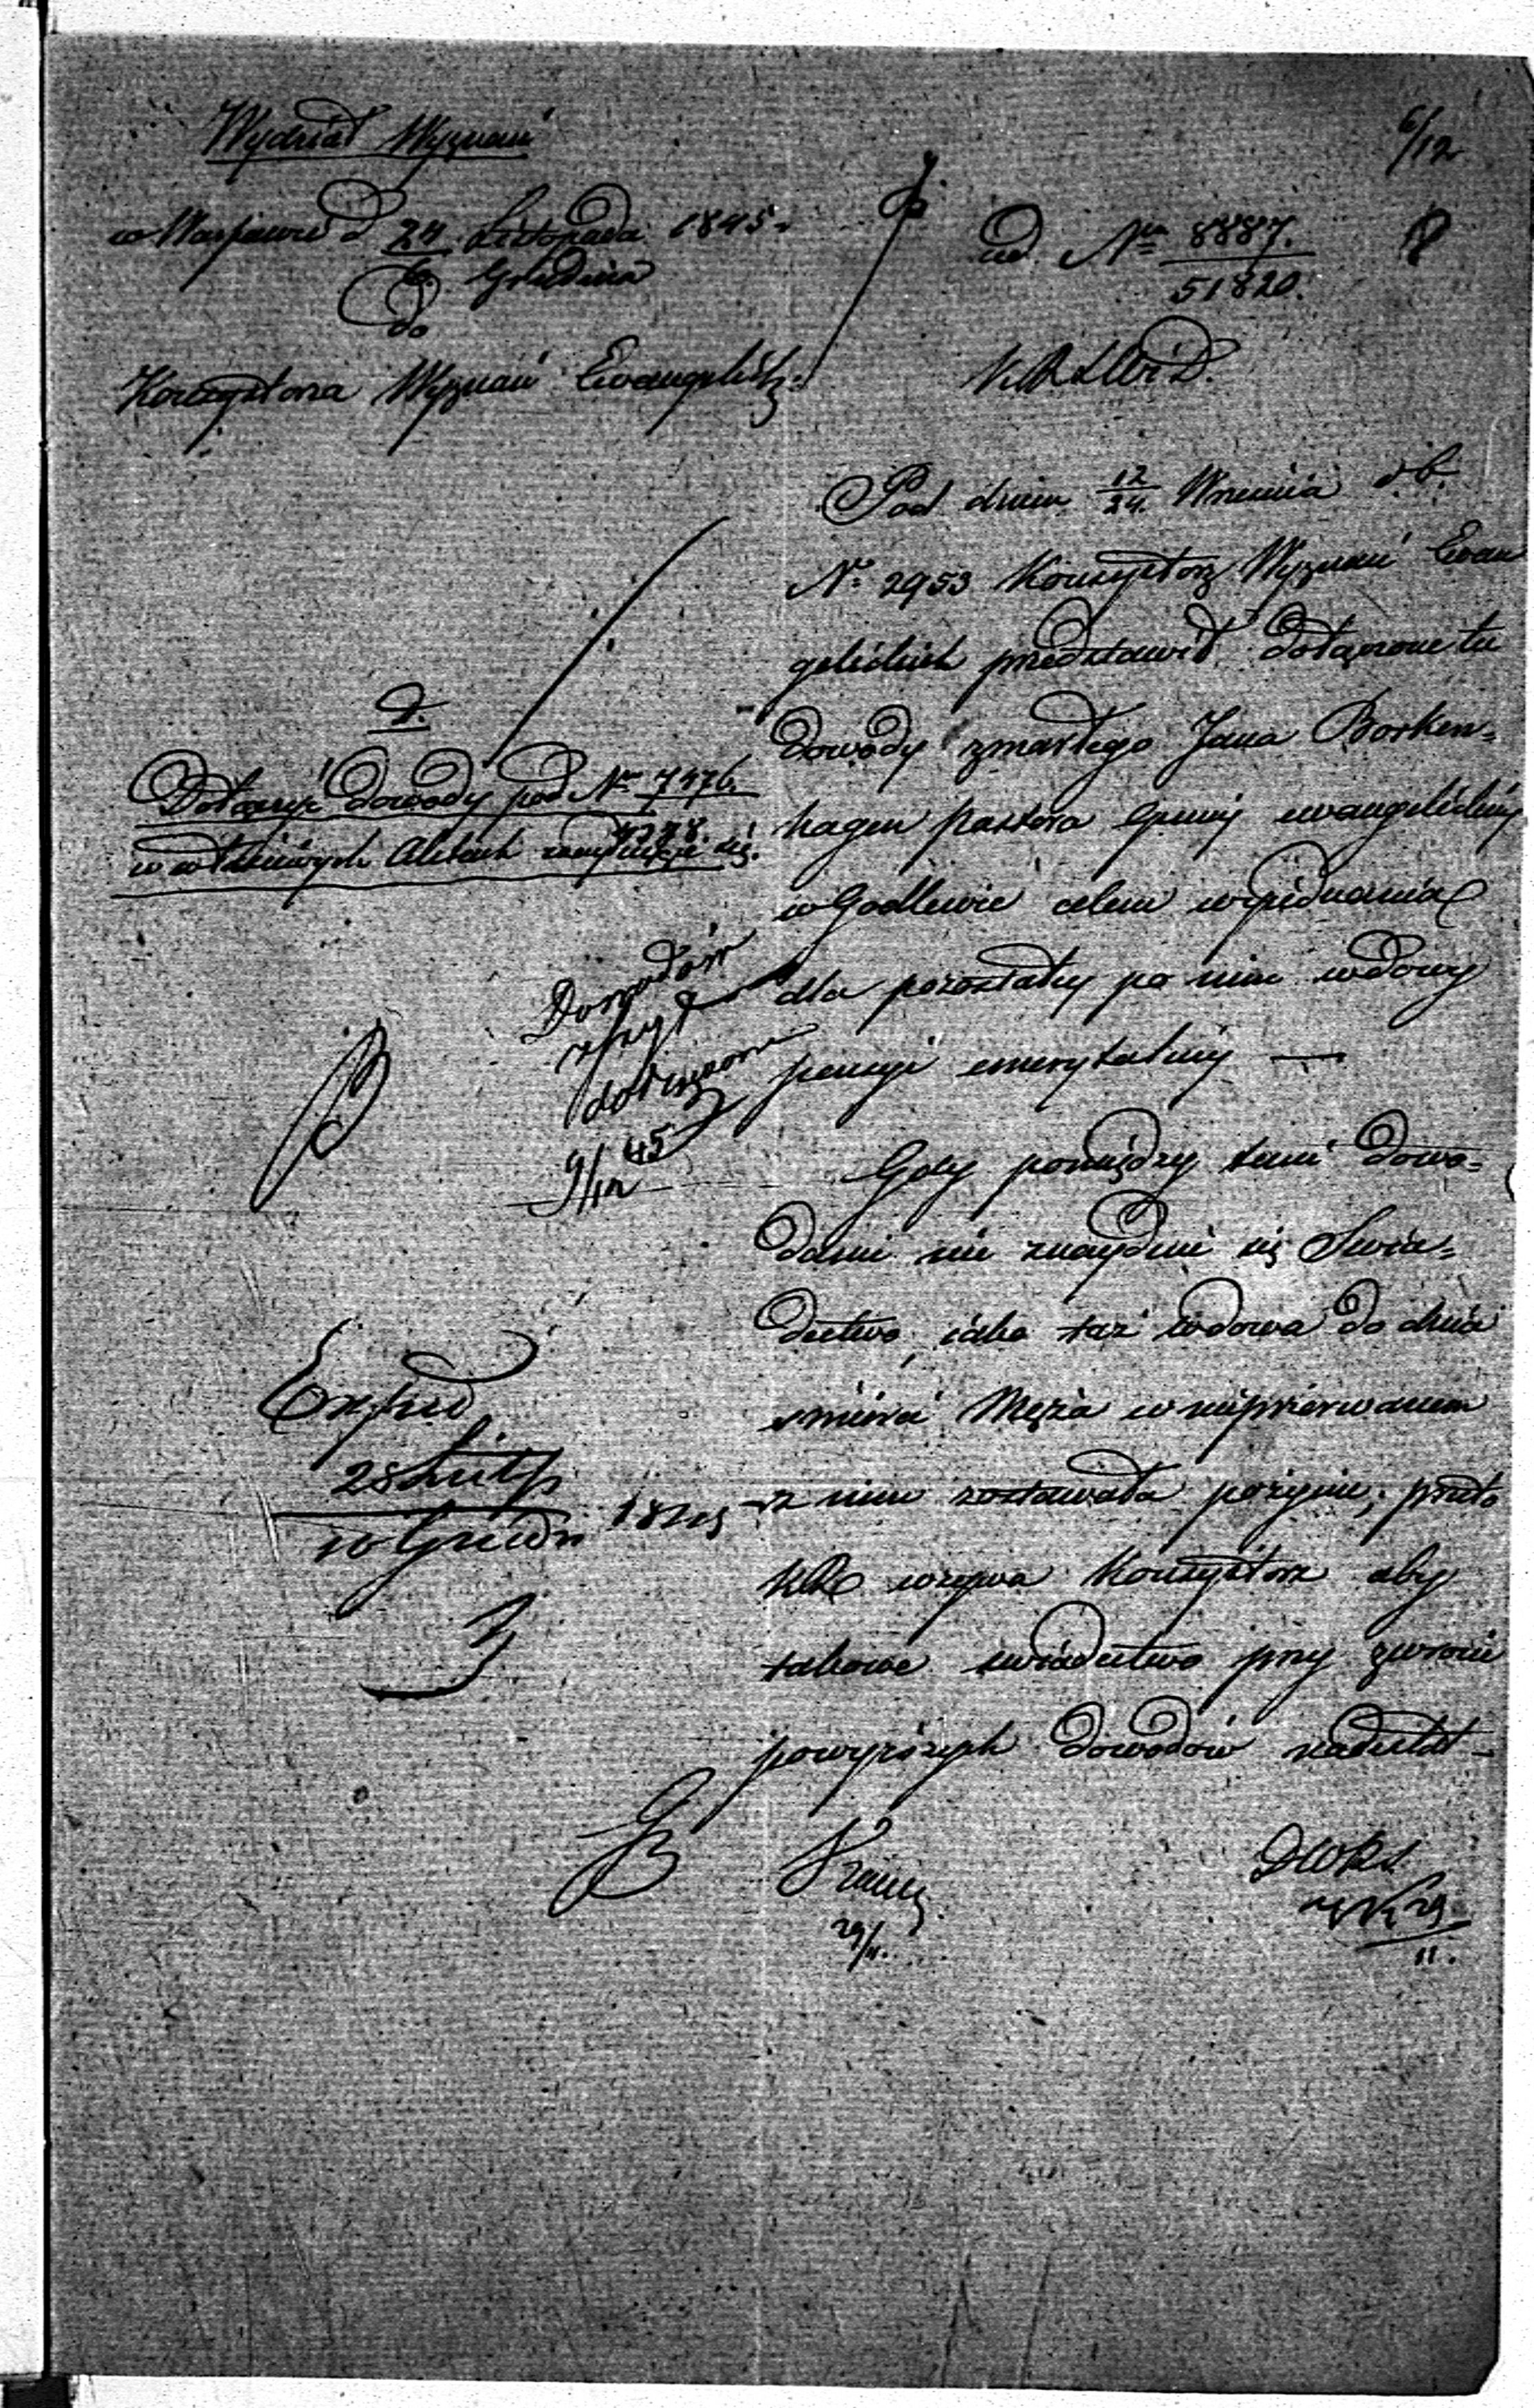 6/12
Wydział Wyznań
w Warszawie d 24 Listopada 1845.
6. Grudnia
do
Konsystorza Wyznań Ewangelick:
ad Nm 8887.
51820.
8
K.R.S.W.i D.
Pod dniem 12/24. Września r.b.
No 2953 Konsystorz Wyznań Ewan
gelickich przedstawił dołączone tu
dowody zmarłego Jana Borken=
hagen Pastora Gminy ewangelickiej
w Godlewie celem wyjednania
dla pozostałey po nim wdowy
pensyi emerytalney —
Gdy pomiędzy temi dowo=
dami nie znayduie się Swia=
dectwo iako taż wdowa do dnia
śmierci Męża w nieprzerwanem
z nim zostawała pożyciu; przeto
KR wzywa Konsystorz aby
takowe swiadectwo przy zwrocie
powyższych dowodów nadesłał_
d.
Dołączyć dowody pod Nm 7476.
4278.
w właściwych Aktach znayduiące się.
Dowodów
dołączono
9/12 45
Exped
28 Listp
10 Grudn 1845
29/11.
29
11.